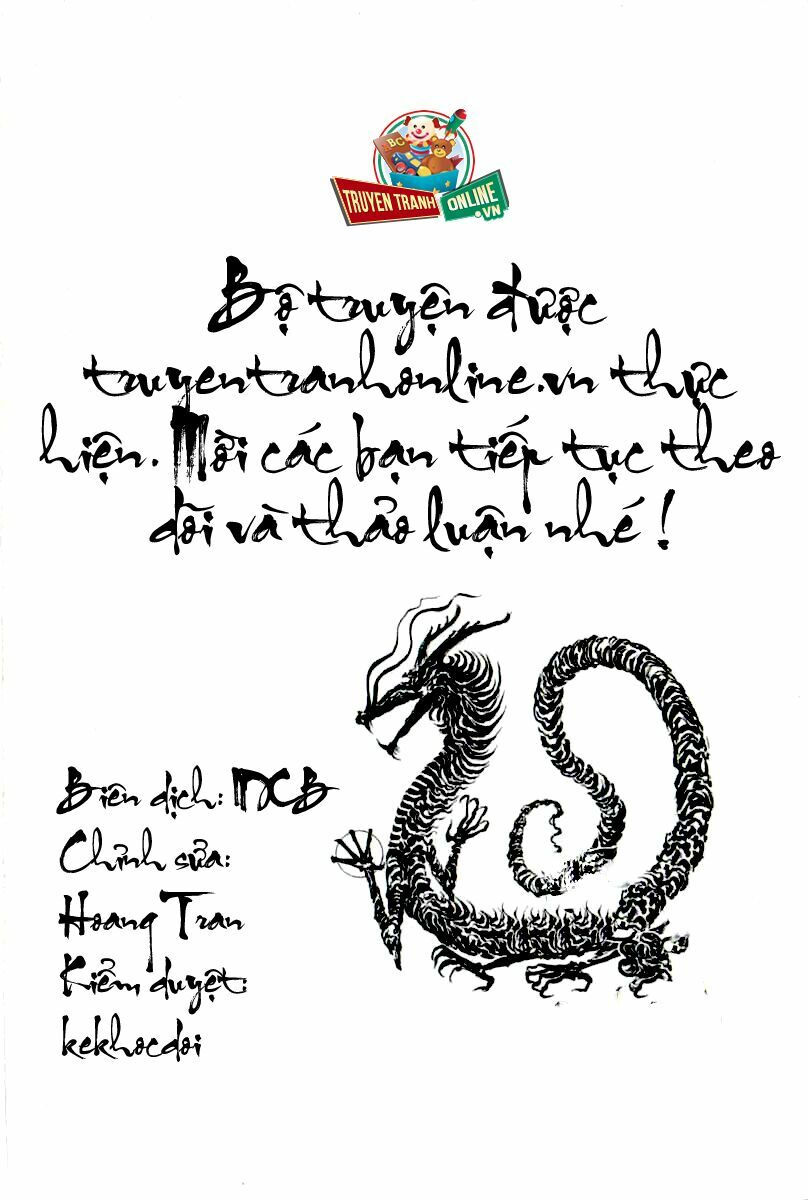 ABC
TRUYEN TRANH ONLINE
.VN
Bộ truyện được
truyentranhonline.vn thực
hiện. Mời các bạn tiếp tục theo
dõi và thảo luận nhé !
Biên dịch: MCB
Chỉnh sửa:
Hoang Tran
Kiểm duyệt:
kekhocdoi